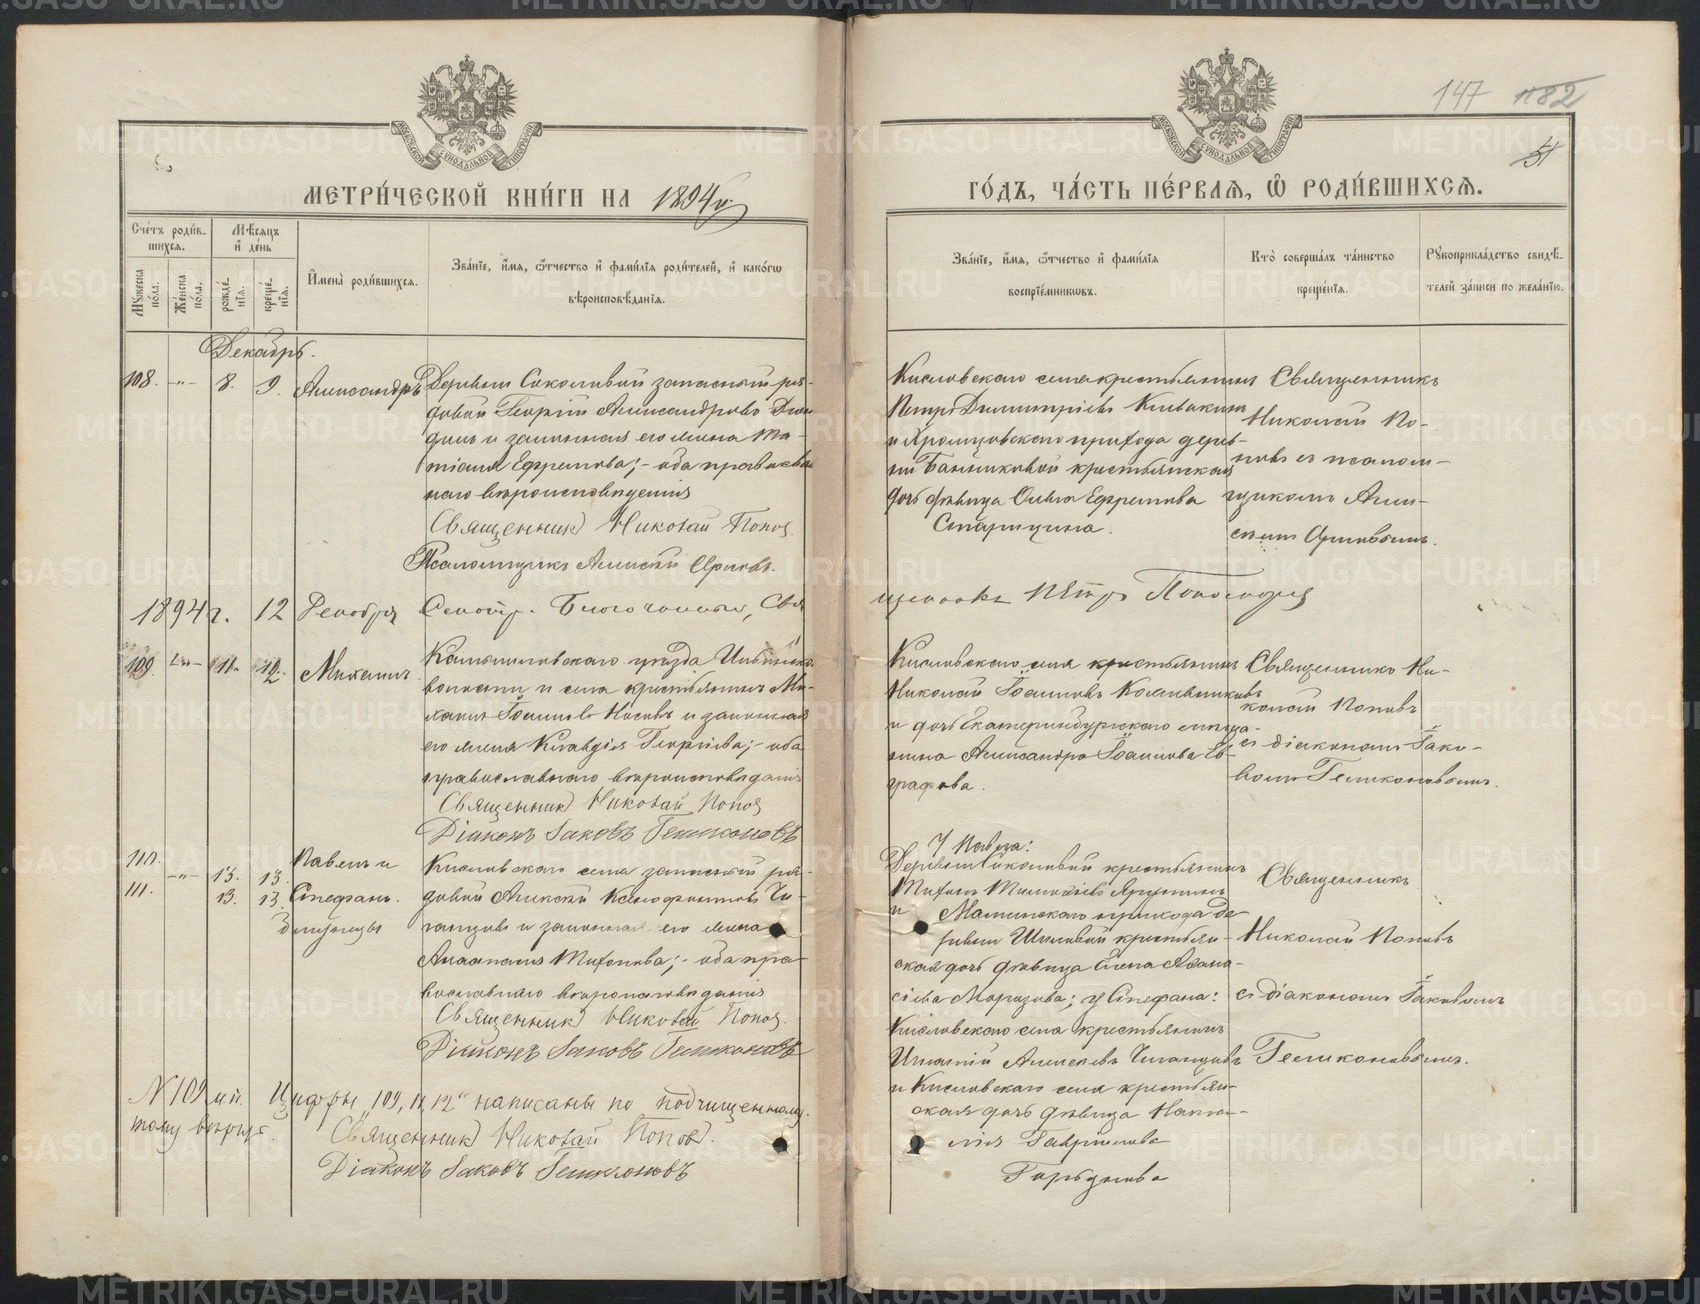 147 1182
51
МЕТРИ́ЧЕСКОЙ КНИ́ГИ НА 1894 г.
ГО́ДЪ, ЧА́СТЬ ПЕ́РВАѦ, Ѽ РОДИ́ВШИХСѦ.
Сче́тъ роди́в-
шихся.
Мѣ́сяцъ
и҆ де́нь
Мꙋ́жеска по́ла.
Же́нска по́ла.
рожде́-
нїѧ.
креще́-
нїѧ.
И҆мена̀ роди́вшихсѧ.
Зва́нїе, и҆́мѧ, ѻ҆́тчество и҆ фамѝлїѧ роди́телей, и҆ како́гѡ
вѣроисповѣ́данїѧ.
Зва́нїе, и҆́мѧ, ѻ҆́тчество и҆ фами́лїѧ
воспрїе́мникѡвъ.
Кто̀ соверша́лъ та́инство
креще́нїѧ.
Рꙋкоприкла́дство свидѣ́-
телей за́писи по жела́нїю.
Декабрь.
108. -"- 8. 9. Александръ
Деревни Соколовой запасный ря-
довой Георгій Александровъ
и законная его жена Та-
тіана Ефремова; - оба православ
наго вѣроисповѣданія
Священникъ Николай Поповъ.
Псаломщикъ Алексѣй Орловъ.
Кисловскаго села крестьянинъ
Петръ Димитріевъ Клевакинъ
и Храмцовскаго прихода дерев-
ни Банниковой крестьянская
дочь дѣвица Ольга Ефремова
Старицына.
Священникъ
Николай По-
повъ съ псалом-
щикомъ Алек-
сѣемъ Орловымъ.
1894 г. 12 Декабря Благочинный, Свя
щенникъ Петръ
109. -"- 11. 12. Михаилъ
Камышловскаго уѣзда
волости и села крестьянинъ Ми-
хаилъ Іоанновъ Носовъ и законная
его жена Клавдія Георгіева; - оба
православнаго вѣроисповѣданія
Священникъ Николай Поповъ
Діаконъ Іаковъ
Кисловскаго села крестьянинъ
Николай Іоанновъ
и дочь Екатеринбургскаго мѣща-
нина Александра Іоаннова Ев-
графова.
Священникъ Ни-
колай Поповъ
съ діакономъ Іако-
вомъ
110.
111.
-"- 13. 13.
13. 13.
Павелъ и
Стефанъ.
близнецы
Кисловскаго села запасный ря-
довой Алексѣй Ксенофонтовъ Чи-
ганцовъ и законная его жена
Анастасія Тихонова; - оба пра-
вославнаго вѣроисповѣданія
Священникъ Николай Поповъ.
Діаконъ Іаковъ
У Павла:
Деревни Соколовой крестьянинъ
Тихонъ Тимоѳеевъ
и Маминскаго прихода де
ревни Шиловой крестьян-
ская дочь дѣвица Елена Аѳана-
сіева Морозова; у Стефана:
Кисловскаго села крестьянинъ
Игнатій Алексѣевъ Чиганцовъ
и Кисловскаго села крестьян-
ская дочь дѣвица Ната-
лія Гаврилова
Горбунова
Священникъ
Николай Поповъ
съ діакономъ Іаковомъ
№ 109 и п. Цифры "109, 11, 12" написаны по подчищенному.
тому вѣрить.
Священникъ Николай Поповъ.
Діаконъ Іаковъ
METRIKI.GASO-URAL.RU